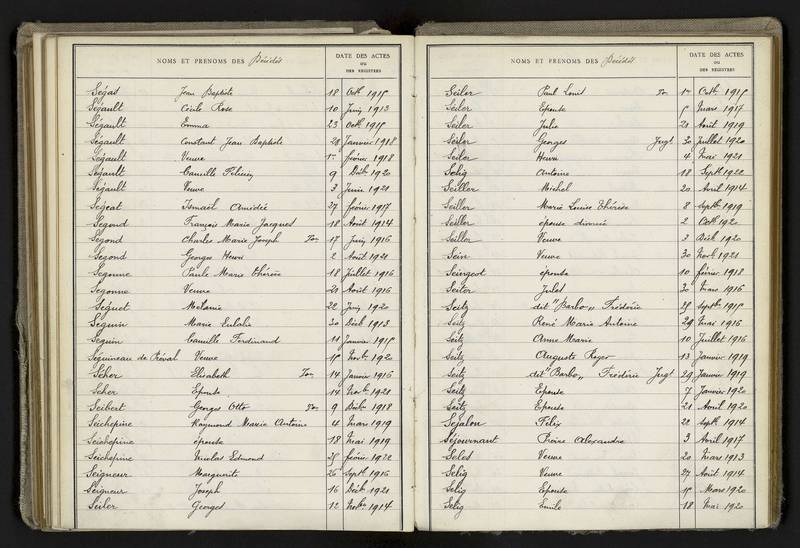 NOMS ET PRENOMS DES Décédés
DATE DES ACTES
OU
DES REGISTRES
Ségas Jean Baptiste 18 Octb. 1915
Segault Cécile Rose 10 Juin 1913
Ségault Emma 23 Octb. 1915
Ségault Constant Jean Baptiste 28 Janvier 1918
Ségault Veuve février 1918
Ségault Camille Félicien 9 Décb. 1920
Ségault Veuve 3 Juin 1921
Ségeat Ismaël Amédée 27 février 1917
Segond François Marie Jacques 18 Août 1914
Segond Charles Marie Joseph 17 Juin 1916
Segond Georges Henri 2 Août 1921
Segonne Paule Marie Thérèse 18 Juillet 1916
Segonne Veuve 20 Août 1916
Séguet Mélanie 22 Juin 1920
Seguin Marie Eulalie 30 Décb. 1913
Seguin Camille Ferdinand 11 Janvier 1915
Séguineau de Préval Veuve 15 Novb. 1920
Seher Elisabeth 14 Janvier 1916
Seher Epouse 14 Novb. 1921
Seibert Georges Otto 9 Décb. 1918
Seichepine Raymond Marie Antoine 4 Mars 1919
Seichepine épouse 18 Mai 1919
Seichepine Nicolas Edmond 25 février 1922
Seigneur Marguerite 26 Septb. 1916
Seigneur Joseph 16 Décb. 1921
Seiler Georges 12 Novb. 1914
NOMS ET PRENOMS DES Décédés
DATE DES ACTES
OU
DES REGISTRES
Seiler Paul Louis Octb. 1915
Seiler Epouse 5 Mars 1917
Seiler Julie 21 Août 1919
Seiler Georges Jugt 30 Juillet 1920
Seiler Henri 4 Mai 1921
Selig Antoine 18 Septb. 1922
Seiller Michel 20 Avril 1914
Seiller Marie Louise Thérèse 8 Septb. 1919
Seiller épouse divorcée 2 Octb. 1920
Seiller Veuve 3 Décb. 1920
Sein Veuve 30 Novb. 1921
Seingeot épouse 10 février 1918
Seiter Jules 30 Mai 1916
Seitz dit "Barbo" Frédéric 25 Septb. 1915
Seitz René Marie Antoine 29 Mai 1916
Seitz Anne Marie 10 Juillet 1916
Seitz Auguste Roger 13 Janvier 1919
Seitz dit "Barbo" Frédéric Jugt 29 Janvier 1919
Seitz Epouse 7 Janvier 1920
Seitz Epouse 21 Avril 1920
Séjalon Félix 22 Septb. 1914
Séjournant Pierre Alexandre 3 Avril 1917
Seles Veuve 20 Mars 1913
Selig Veuve 27 Août 1914
Selig Epouse 15 Mars 1920
Selig Emile 18 Mai 1920